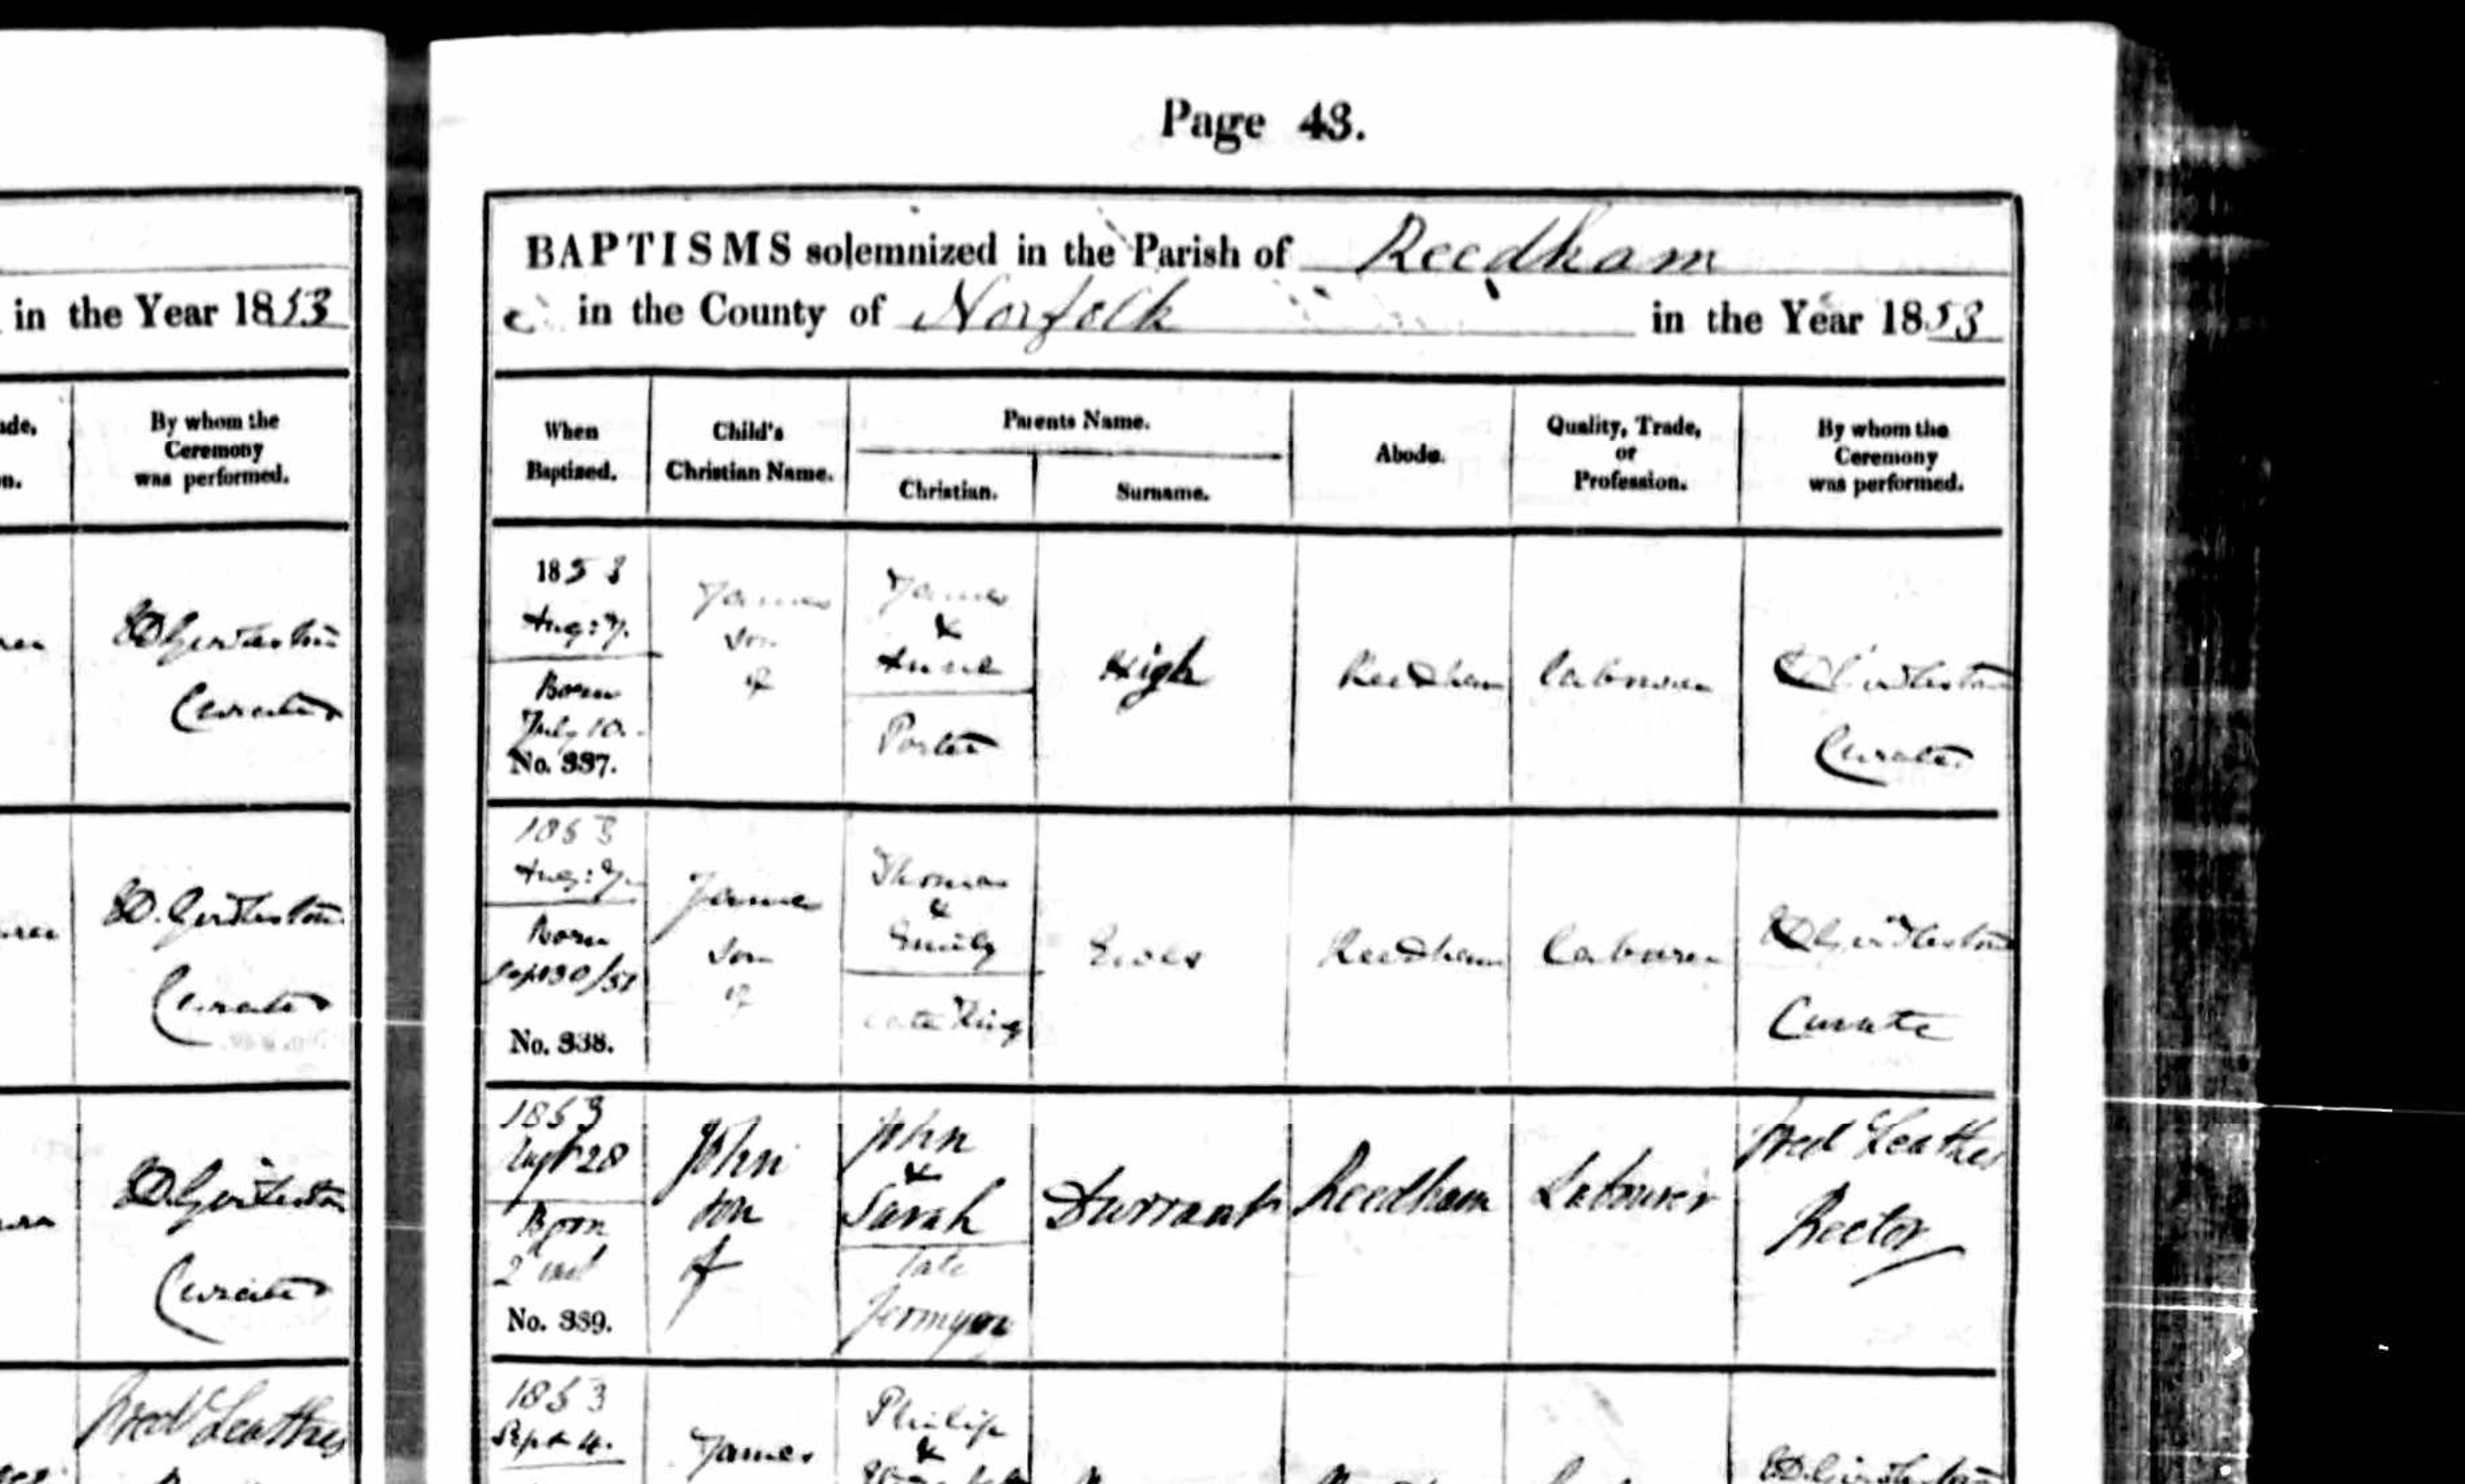 in the Year 1853
By whom the
Ceremony
was performed.
Curate
Curate
Curate
Fred Leathes
Page 43.
BAPTISMS solemnized in the Parish of Reedham
in the County of Norfolk in the Year 1853
When
Baptized.
Child's
Christian Name.
Parents Name.
Christian.
Surname.
Abode.
Quality, Trade,
or
Profession.
By whom the
Ceremony
was performed.
1853
Aug: 7.
Born
July 10.
No. 337.
James
son
of
James
&
Anne
Porter
High
Reedham
labourer
Curate
1853
Aug: 7.
Born
Sept 30/51
No. 338.
James
son
of
Thomas
&
Emily
late King
Eves
Reedham
labourer
Curate
1853
Augt 28
Born
2 inst
No. 339.
John
son
of
John
&
Sarah
late
Jermyn
Durrant
Reedham
Labourer
Fred Leathes
Rector
1853
Sept 4.
James
Philip
&